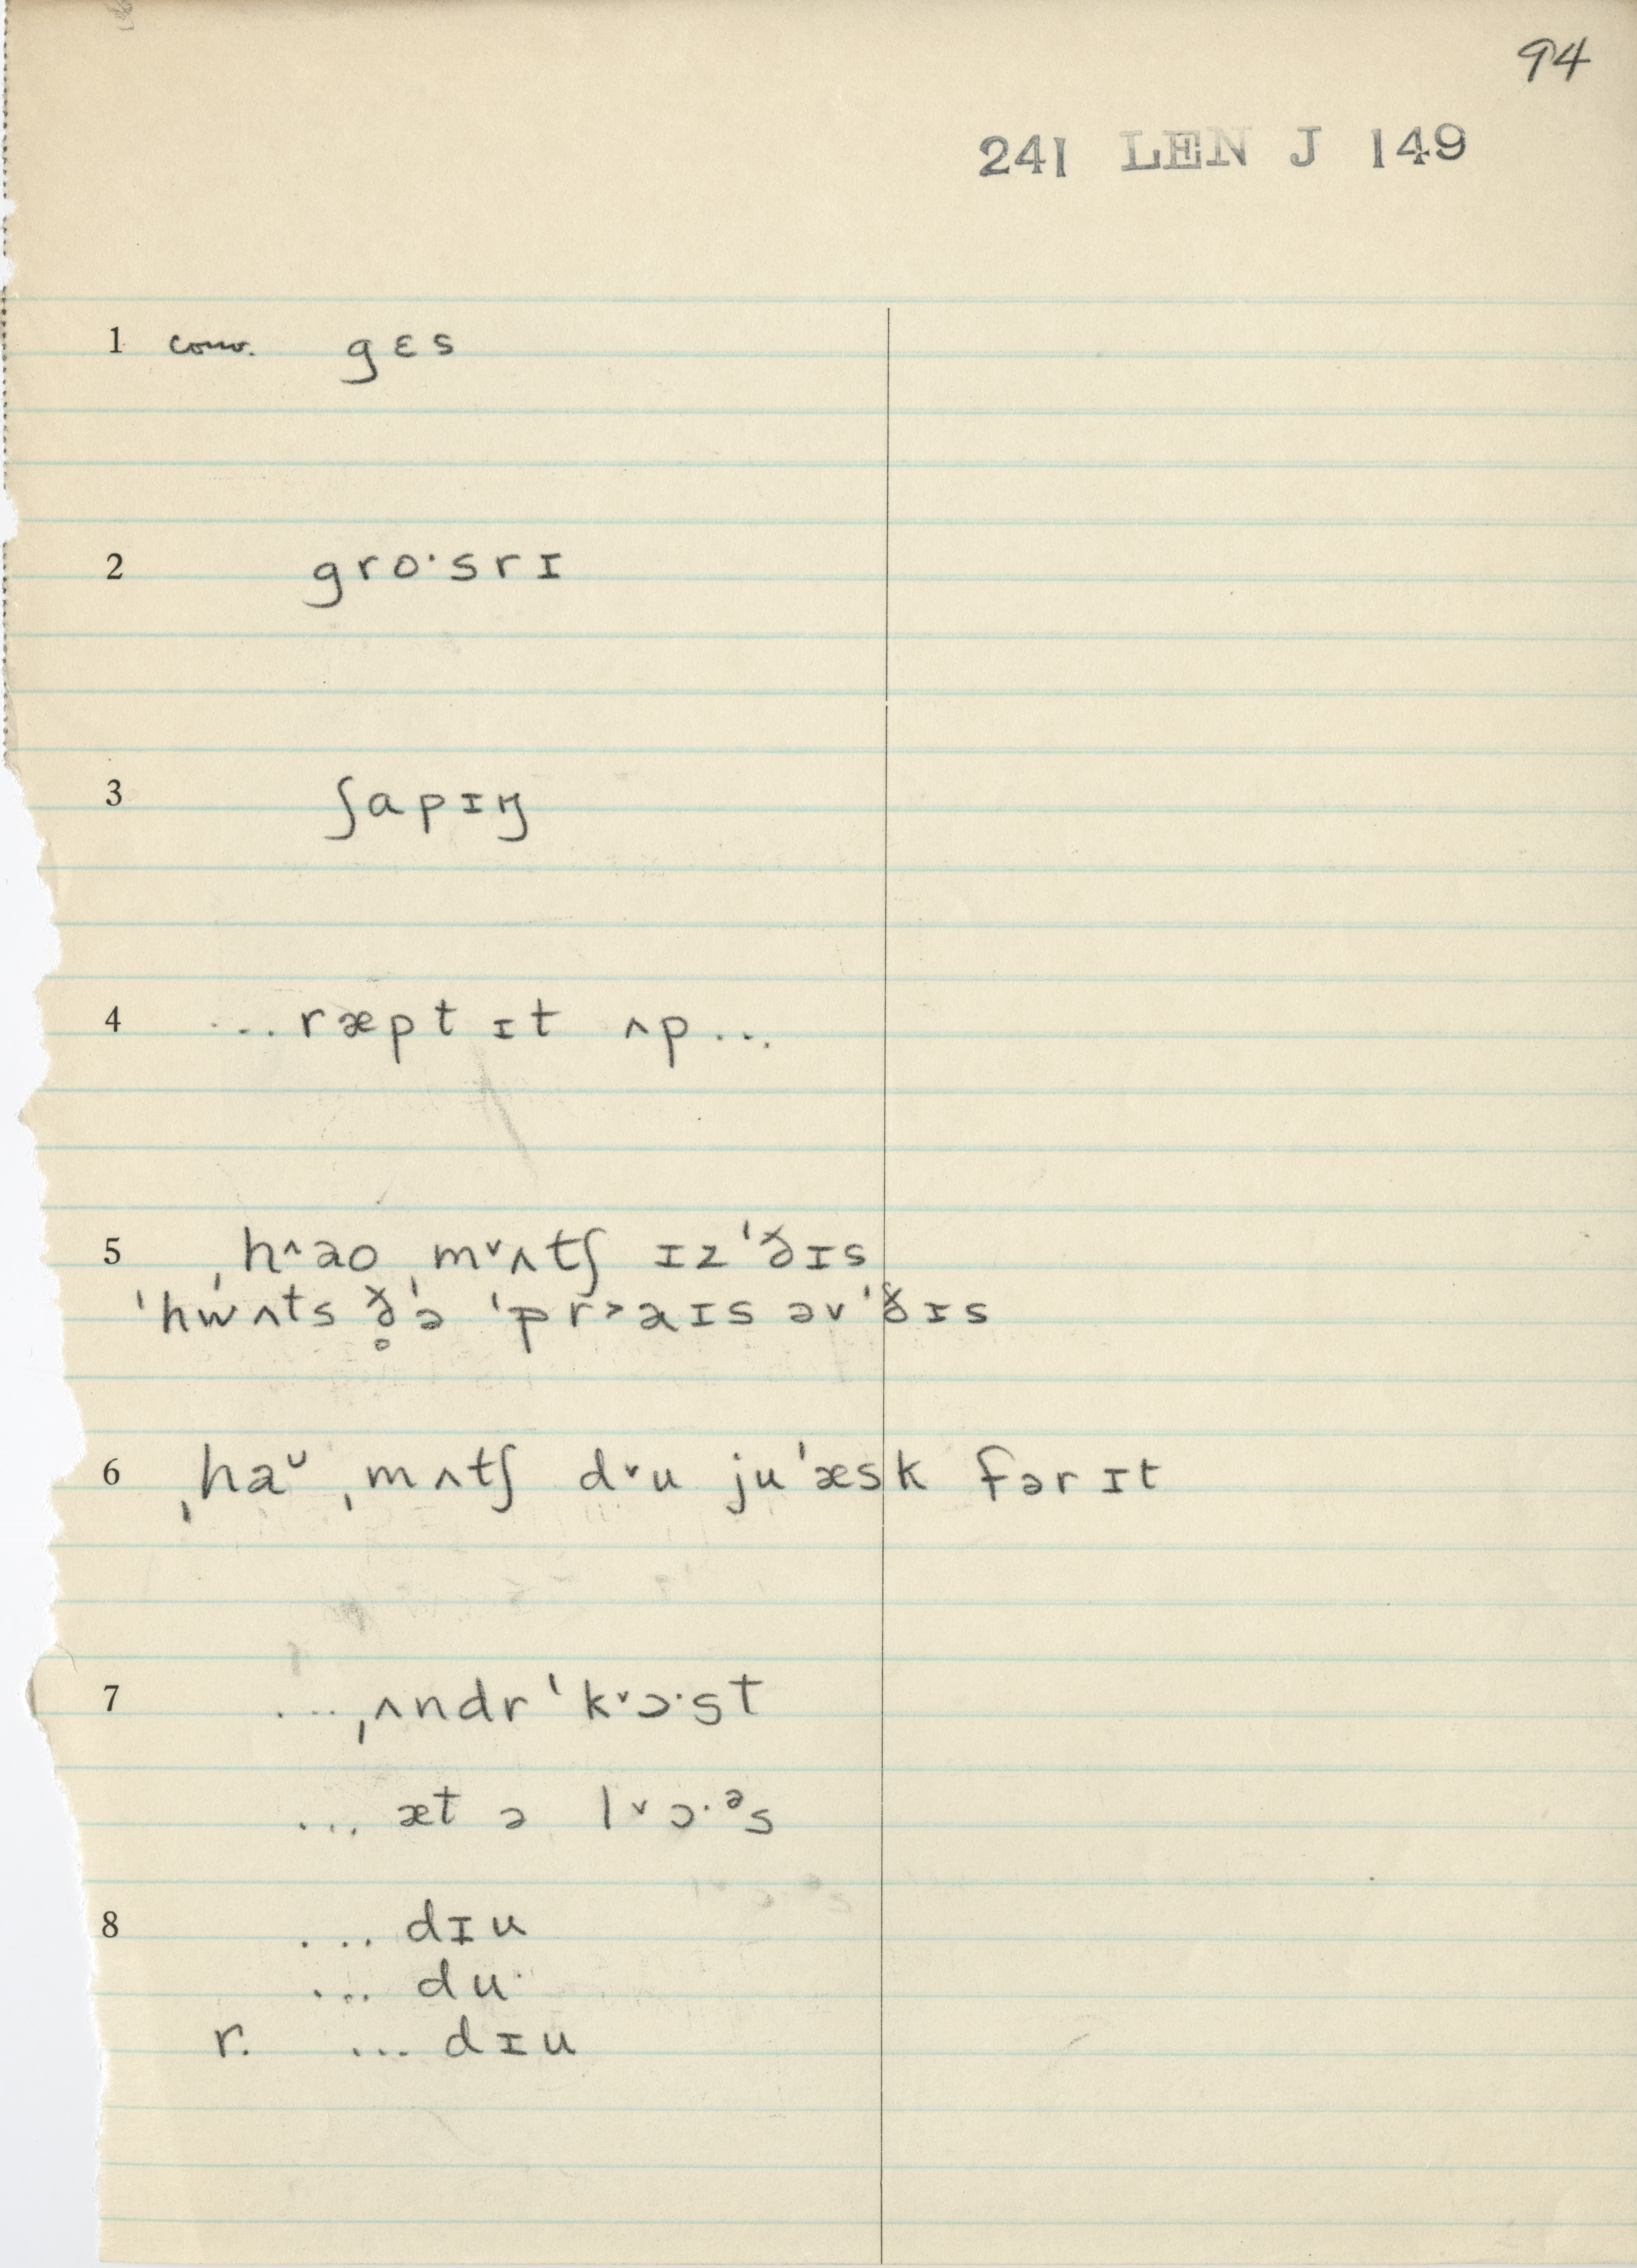 94
241 LEN J 149
1 conv. gɛs
2 gro·srɪ
3 ʃapɪŋ
4 ... ræpt ɪt ʌp ...
5 ˌh^ɑo ˌmᵛʌtʃ ɪzˈðɪs
ˈhwʌts ð̥ə ˈpr˃aɪs əvˈðɪs
6 ˌhaᴗ ˌmʌtʃ dᵛu juˈæsk fər ɪt
7 ... ˌʌndrˈkᵛɔ·st
... æt ə lᵛɔ·ᵊs
8 ... dɪu
... du·
r. ... dɪu